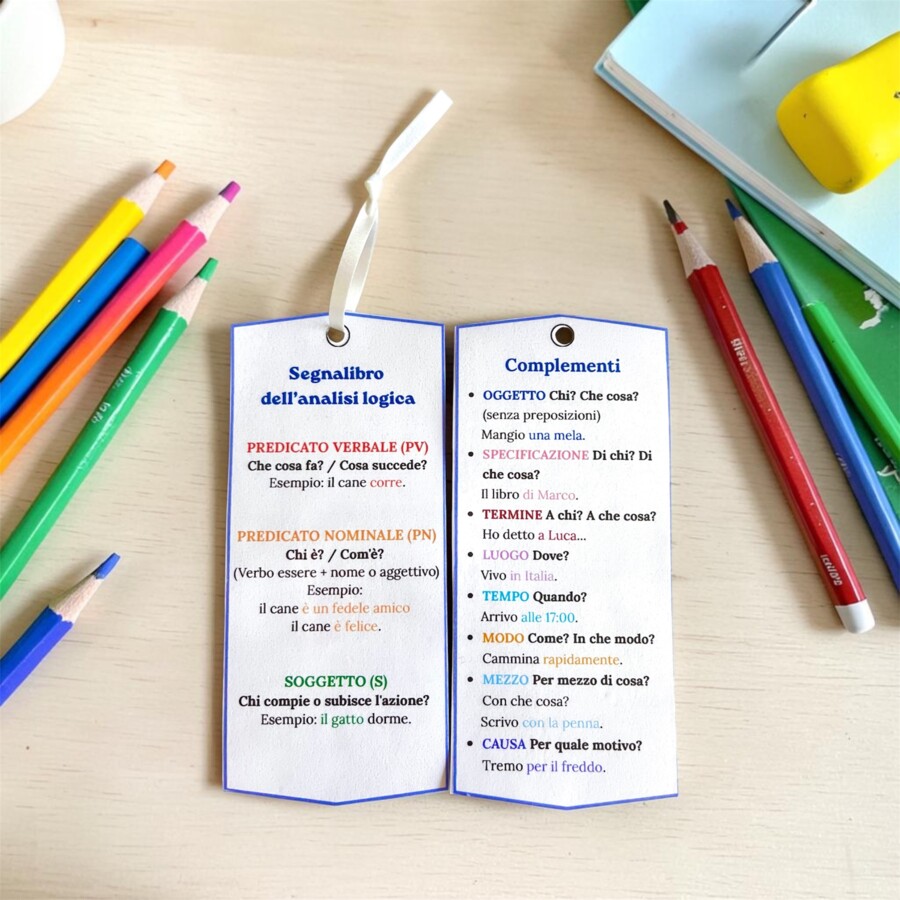 Segnalibro
dell'analisi logica
PREDICATO VERBALE (PV)
Che cosa fa? / Cosa succede?
Esempio: il cane corre.
PREDICATO NOMINALE (PN)
Chi è? / Com'è?
(Verbo essere + nome o aggettivo)
Esempio:
il cane è un fedele amico
il cane è felice.
SOGGETTO (S)
Chi compie o subisce l'azione?
Esempio: il gatto dorme.
Complementi
• OGGETTO Chi? Che cosa?
(senza preposizioni)
Mangio una mela.
• SPECIFICAZIONE Di chi? Di
che cosa?
Il libro di Marco.
• TERMINE A chi? A che cosa?
Ho detto a Luca...
• LUOGO Dove?
Vivo in Italia.
• TEMPO Quando?
Arrivo alle 17:00.
• MODO Come? In che modo?
Cammina rapidamente.
• MEZZO Per mezzo di cosa?
Con che cosa?
Scrivo con la penna.
• CAUSA Per quale motivo?
Tremo per il freddo.